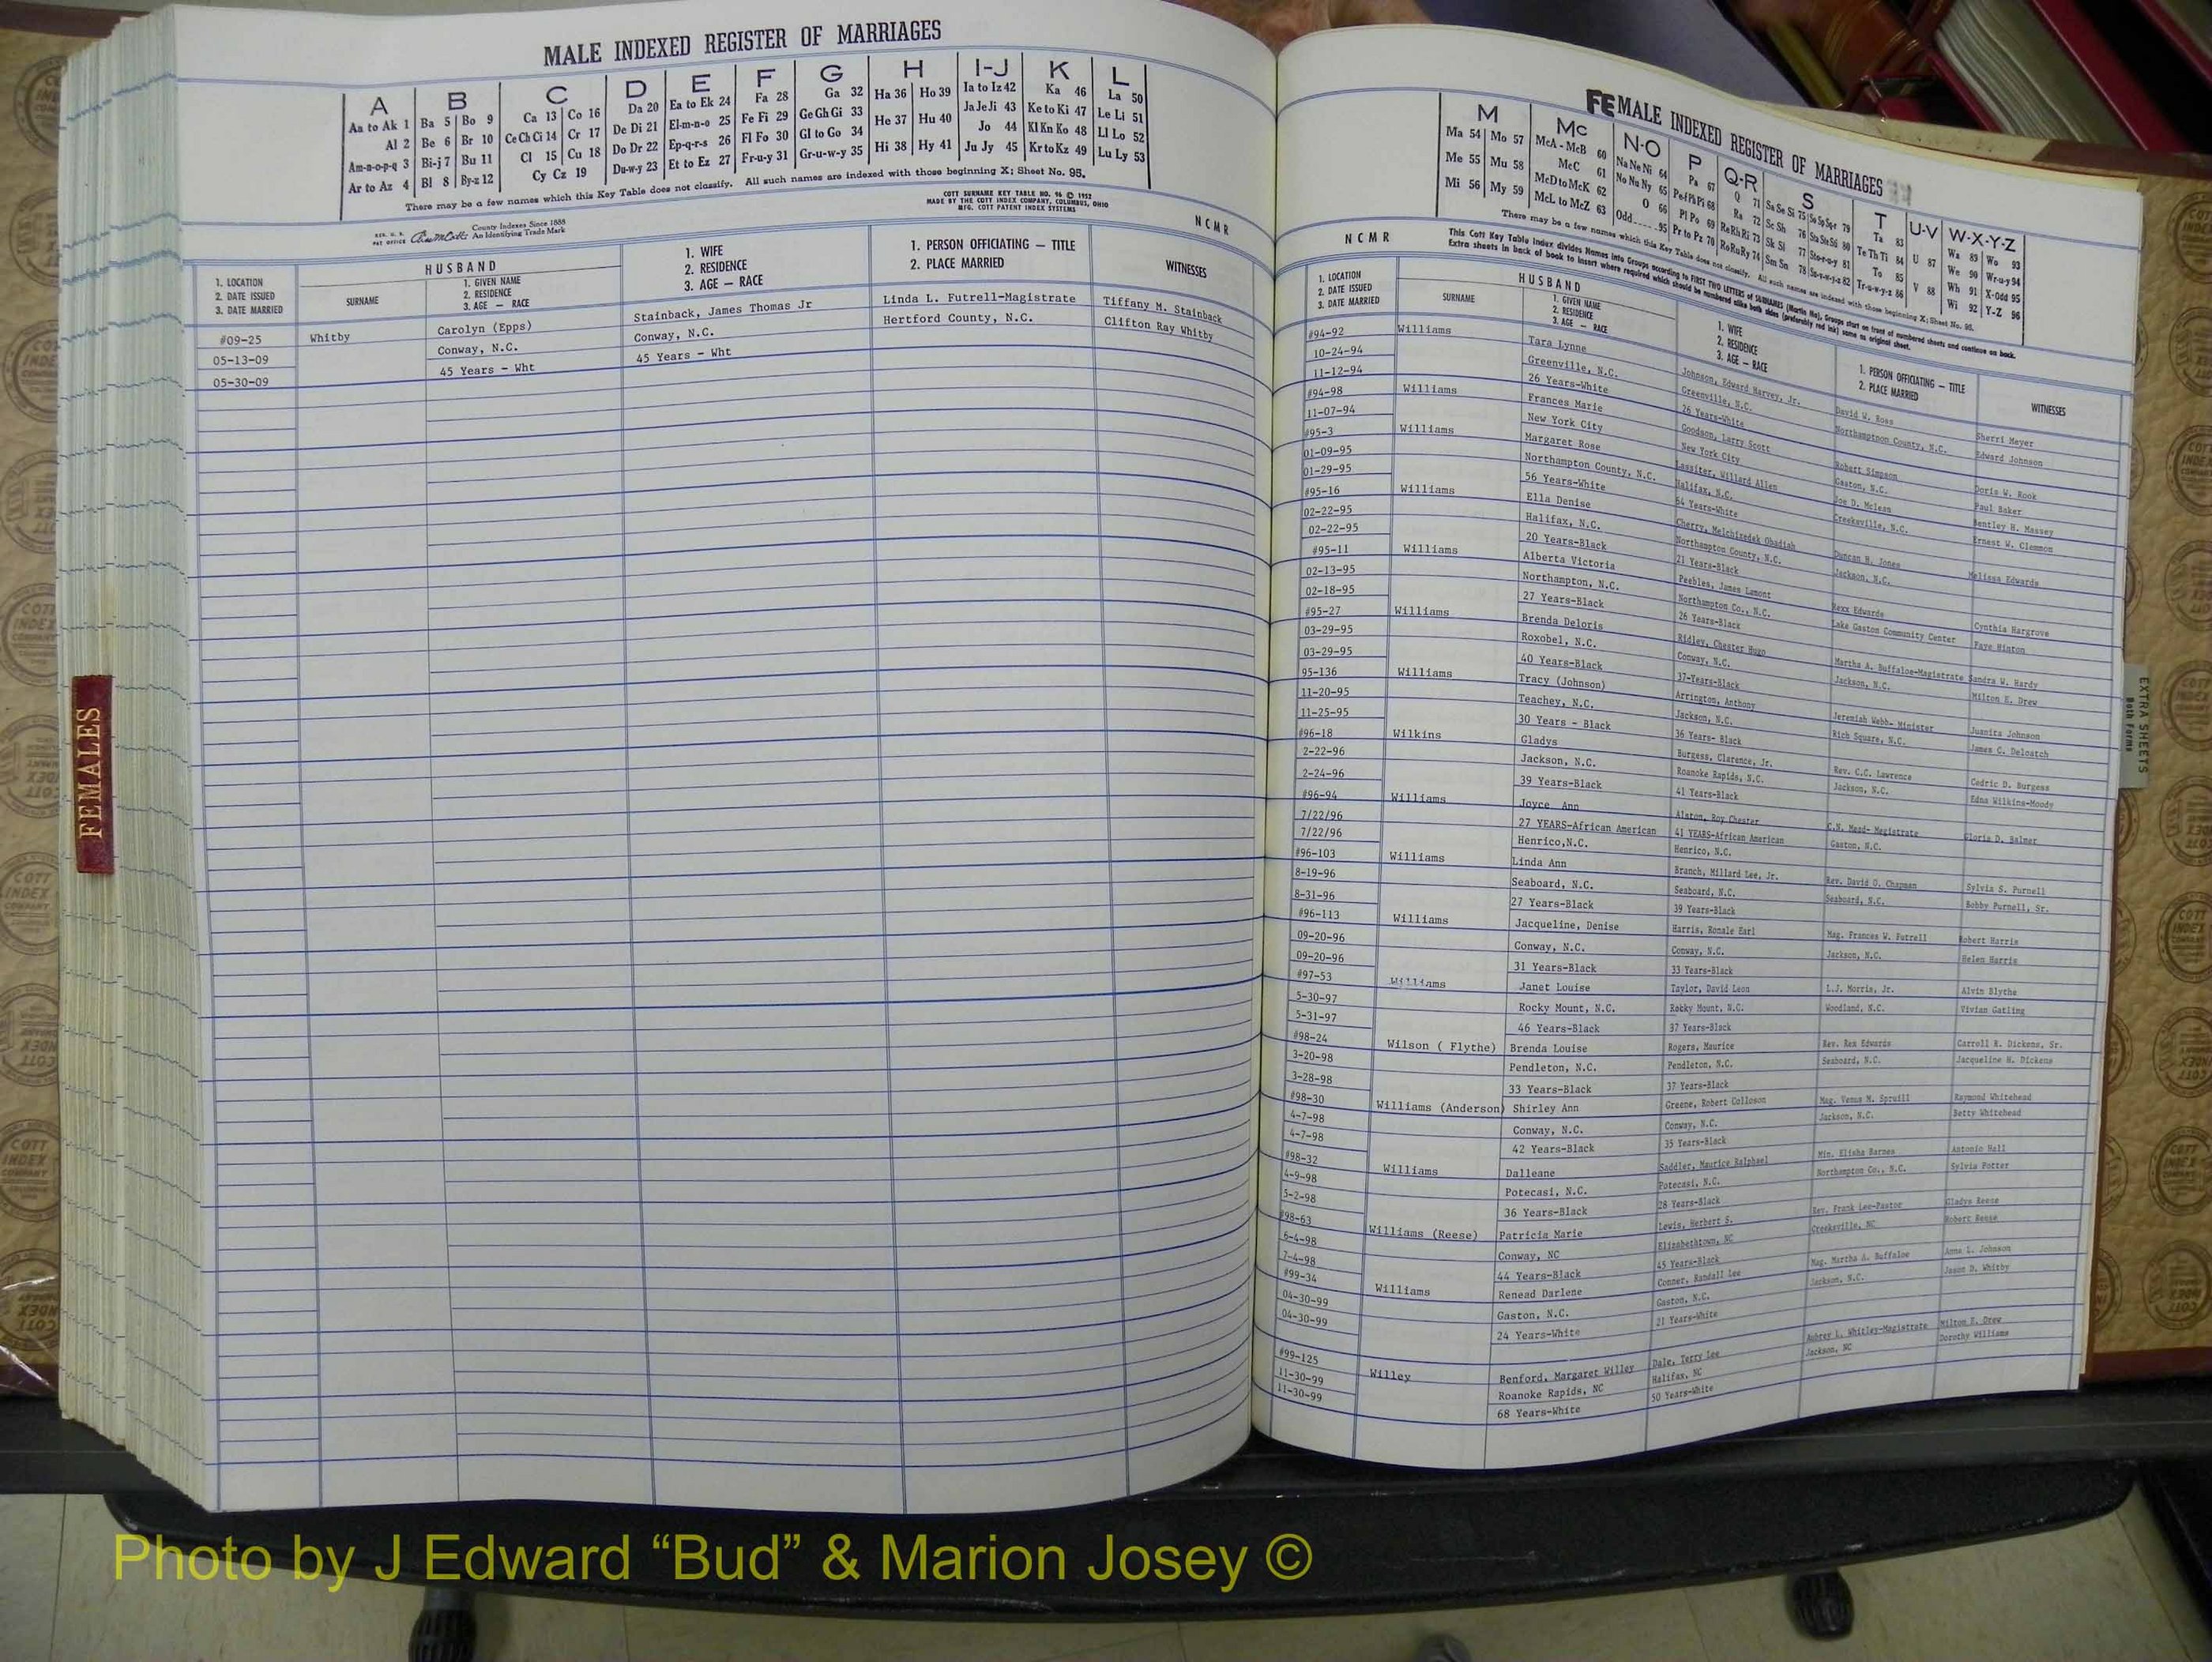 MALE INDEXED REGISTER OF MARRIAGES
A B C D E F G H I-J K L
Aa to Ak 1 Ba 5 Bo 9 Ca 13 Co 16 Da 20 Ea to Ek 24 Fa 28 Ga 32 Ha 36 Ho 39 Ia to Iz 42 Ka 46 La 50
Al 2 Be 6 Br 10 Ce Ch Ci 14 Cr 17 De Di 21 El-m-n-o 25 Fe Fi 29 Ge Gh Gi 33 He 37 Hu 40 Ja Je Ji 43 Ke to Ki 47 Le Li 51
Am-n-o-p-q 3 Bi-j 7 Bu 11 Cl 15 Cu 18 Do Dr 22 Ep-q-r-s 26 Fl Fo 30 Gl to Go 34 Hi 38 Hy 41 Jo 44 Kl Kn Ko 48 Ll Lo 52
Ar to Az 4 Bl 8 By-z 12 Cy Cz 19 Du-w-y 23 Et to Ez 27 Fr-u-y 31 Gr-u-w-y 35 Ju Jy 45 Kr to Kz 49 Lu Ly 53
There may be a few names which this Key Table does not classify. All such names are indexed with those beginning X; Sheet No. 95.
COTT SURNAME KEY TABLE NO. 96 © 1952
MADE BY THE COTT INDEX COMPANY, COLUMBUS, OHIO
MFG. COTT PATENT INDEX SYSTEMS
REG. U. S. PAT OFFICE
County Indexes Since 1888
An Identifying Trade Mark
NCMR
1. LOCATION
2. DATE ISSUED
3. DATE MARRIED
HUSBAND
SURNAME
1. GIVEN NAME
2. RESIDENCE
3. AGE — RACE
1. WIFE
2. RESIDENCE
3. AGE — RACE
1. PERSON OFFICIATING — TITLE
2. PLACE MARRIED
WITNESSES
#09-25 Whitby Carolyn (Epps) Stainback, James Thomas Jr Linda L. Futrell-Magistrate Tiffany M. Stainback
05-13-09 Conway, N.C. Conway, N.C. Hertford County, N.C. Clifton Ray Whitby
05-30-09 45 Years - Wht 45 Years - Wht
FEMALES
FEMALE INDEXED REGISTER OF MARRIAGES
M Mc N-O P Q-R S T U-V W-X-Y-Z
Ma 54 Mo 57 McA - McB 60 Na Ne Ni 64 Pa 67 Q 71 Sa Se Si 75 79 Ta 83 U 87 Wa 89 Wo 93
Me 55 Mu 58 McC 61 No Nu Ny 65 Pe-f Ph Pi 68 Ra 72 Sc Sh 76 80 Te Th Ti 84 V 88 We 90 Wr-u-y 94
Mi 56 My 59 McD to McK 62 O 66 Pl Po 69 Re Rh Ri 73 Sk Sl 77 81 To 85 Wh 91 X-Odd 95
McL to McZ 63 Odd 95 Pr to Pz 70 Ro Ru Ry 74 Sm Sn 78 82 Tr-u-w-y-z 86 Wi 92 Y-Z 96
There may be a few names which this Key Table does not classify. All such names are indexed with those beginning X; Sheet No. 95.
This Cott Key Table Index divides Names into Groups according to FIRST TWO LETTERS of SURNAMES (Martin Ma), Groups start on front of numbered sheets and continue on back.
Extra sheets in back of book to insert where required which should be numbered alike both sides (preferably red ink) same as original sheet.
NCMR
1. LOCATION
2. DATE ISSUED
3. DATE MARRIED
HUSBAND
SURNAME
1. GIVEN NAME
2. RESIDENCE
3. AGE — RACE
1. WIFE
2. RESIDENCE
3. AGE — RACE
1. PERSON OFFICIATING — TITLE
2. PLACE MARRIED
WITNESSES
#94-92 Williams Tara Lynne Johnson, Edward Harvey, Jr. David W. Ross Sherri Meyer
10-24-94 Greenville, N.C. Greenville, N.C. Northamptnon County, N.C. Edward Johnson
11-12-94 26 Years-White 26 Years-White
#94-98 Williams Frances Marie Goodson, Larry Scott Robert Simpson Doris W. Rook
11-07-94 New York City New York City Gaston, N.C. Paul Baker
#95-3 Williams Margaret Rose Lassiter, Willard Allen Joe D. Mclean Bentley H. Massey
01-09-95 Northampton County, N.C. Halifax, N.C. Creeksville, N.C. Ernest W. Clemmon
01-29-95 56 Years-White 64 Years-White
#95-16 Williams Ella Denise Cherry, Melchizedek Obadiah Duncan H. Jones Melissa Edwards
02-22-95 Halifax, N.C. Northampton County, N.C. Jackson, N.C.
02-22-95 20 Years-Black 21 Years-Black
#95-11 Williams Alberta Victoria Peebles, James Lamont Rexx Edwards Cynthia Hargrove
02-13-95 Northampton, N.C. Northampton Co., N.C. Lake Gaston Community Center Faye Hinton
02-18-95 27 Years-Black 26 Years-Black
#95-27 Williams Brenda Deloris Ridley, Chester Hugo Martha A. Buffaloe-Magistrate Sandra W. Hardy
03-29-95 Roxobel, N.C. Conway, N.C. Jackson, N.C. Milton E. Drew
03-29-95 40 Years-Black 37-Years-Black
95-136 Williams Tracy (Johnson) Arrington, Anthony Jeremiah Webb- Minister Juanita Johnson
11-20-95 Teachey, N.C. Jackson, N.C. Rich Square, N.C. James C. Deloatch
11-25-95 30 Years - Black 36 Years- Black
#96-18 Wilkins Gladys Burgess, Clarence, Jr. Rev. C.C. Lawrence Cedric D. Burgess
2-22-96 Jackson, N.C. Roanoke Rapids, N.C. Jackson, N.C. Edna Wilkins-Moody
2-24-96 39 Years-Black 41 Years-Black
#96-94 Williams Joyce Ann Alston, Roy Chester C.N. Mead- Magistrate Gloria D. Balmer
7/22/96 27 YEARS-African American 41 YEARS-African American Gaston, N.C.
7/22/96 Henrico,N.C. Henrico, N.C.
#96-103 Williams Linda Ann Branch, Millard Lee, Jr. Rev. David O. Chapman Sylvia S. Purnell
8-19-96 Seaboard, N.C. Seaboard, N.C. Seaboard, N.C. Bobby Purnell, Sr.
8-31-96 27 Years-Black 39 Years-Black
#96-113 Williams Jacqueline, Denise Harris, Ronale Earl Mag. Frances W. Futrell Robert Harris
09-20-96 Conway, N.C. Conway, N.C. Jackson, N.C. Helen Harris
09-20-96 31 Years-Black 33 Years-Black
#97-53 Williams Janet Louise Taylor, David Leon L.J. Morris, Jr. Alvin Blythe
5-30-97 Rocky Mount, N.C. Rocky Mount, N.C. Woodland, N.C. Vivian Gatling
5-31-97 46 Years-Black 37 Years-Black
#98-24 Wilson ( Flythe) Brenda Louise Rogers, Maurice Rev. Rex Edwards Carroll R. Dickens, Sr.
3-20-98 Pendleton, N.C. Pendleton, N.C. Seaboard, N.C. Jacqueline H. Dickens
3-28-98 33 Years-Black 37 Years-Black
#98-30 Williams (Anderson) Shirley Ann Greene, Robert Colloson Mag. Venus M. Spruill Raymond Whitehead
4-7-98 Conway, N.C. Conway, N.C. Jackson, N.C. Betty Whitehead
4-7-98 42 Years-Black 35 Years-Black
#98-32 Williams Dalleane Saddler, Maurice Ralphael Min. Elisha Barnes Antonio Hall
4-9-98 Potecasi, N.C. Potecasi, N.C. Northampton Co., N.C. Sylvia Potter
5-2-98 36 Years-Black 28 Years-Black
#98-63 Williams (Reese) Patricia Marie Lewis, Herbert S. Rev. Frank Lee-Pastor Gladys Reese
6-4-98 Conway, NC Elizabethtown, NC Creeksville, NC Robert Reese
7-4-98 44 Years-Black 45 Years-Black
#99-34 Williams Renead Darlene Conner, Randall Lee Mag. Martha A. Buffaloe Anna L. Johnson
04-30-99 Gaston, N.C. Gaston, N.C. Jackson, N.C. Jason D. Whitby
04-30-99 24 Years-White 21 Years-White
#99-125 Willey Benford, Margaret Willey Dale, Terry Lee Aubrey L. Whitley-Magistrate Milton E. Drew
11-30-99 Roanoke Rapids, NC Halifax, NC Jackson, NC Dorothy Williams
11-30-99 68 Years-White 50 Years-White
EXTRA SHEETS
Both Forms
COTT
INDEX
COMPANY
Photo by J Edward “Bud” & Marion Josey ©